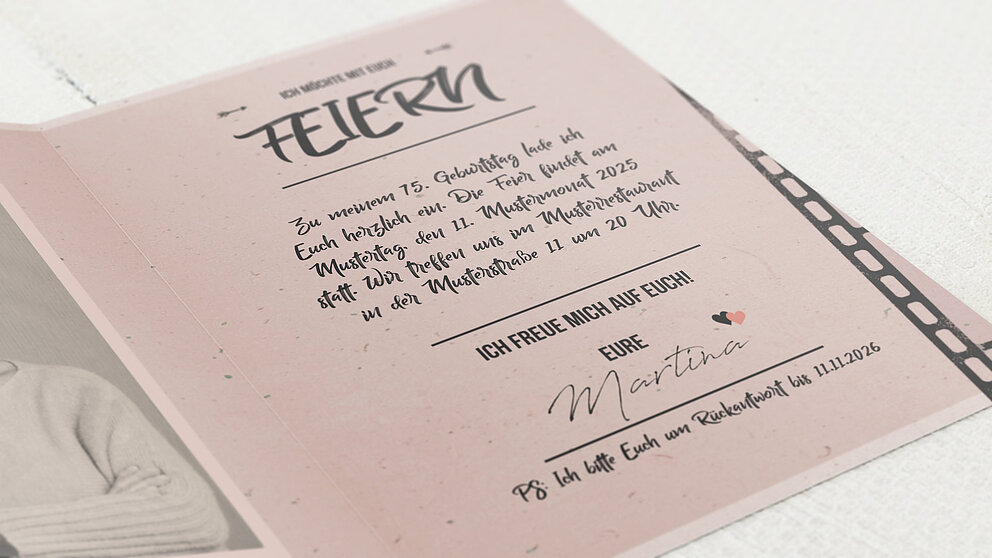 ICH MÖCHTE MIT EUCH
FEIERN
Zu meinem 75. Geburtstag lade ich
Euch herzlich ein. Die Feier findet am
Mustertag, den 11. Mustermonat 2025
statt. Wir treffen uns im Musterrestaurant
in der Musterstraße 11 um 20 Uhr.
ICH FREUE MICH AUF EUCH!
EURE
Martina
PS: Ich bitte Euch um Rückantwort bis 11.11.2026